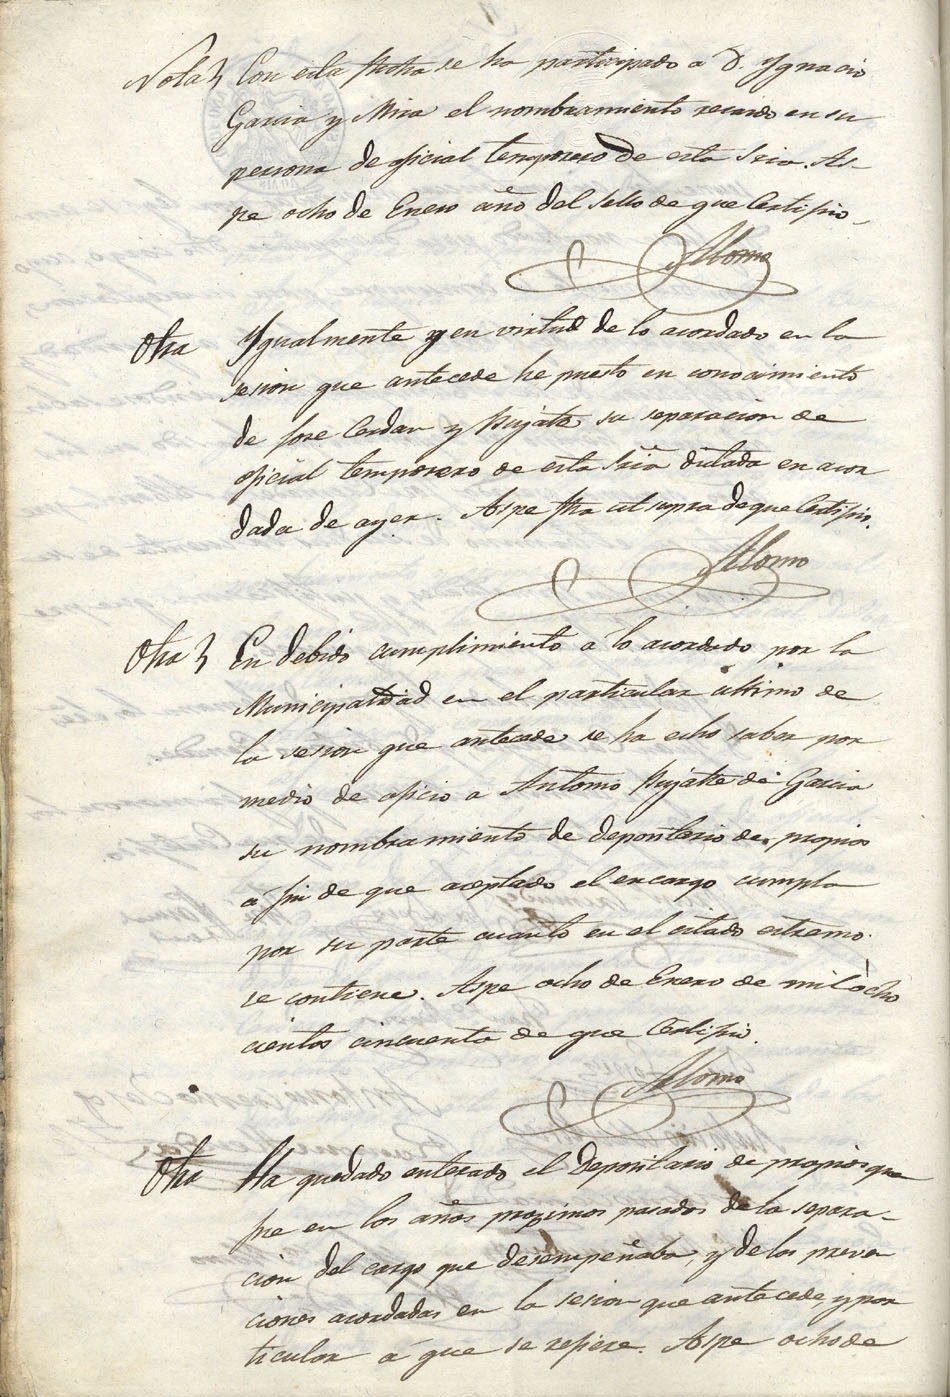 Nota } Con esta fecha se ha participado a D. Ygnacio
Garcia y Mira el nombramiento recaido en su
persona de oficial temporero de esta Sria. As-
pe ocho de Enero año del sello de que Certifico
Alonso
Otra Ygualmente y en virtud de lo acordado en la
sesion que antecede he puesto en conocimiento
de Jose Cerdan y Pujalte su separacion de
oficial temporero de esta Sria dictada en acor
dada de ayer. Aspe fha ut supra de que Certifico.
Alonso
Otra } En debido cumplimiento a lo acordado por la
Municipalidad en el particular ultimo de
la sesion que antecede se ha echo saber por
medio de oficio a Antonio Pujalte de Garcia
su nombramiento de depositario de propios
á fin de que aceptado el encargo cumpla
por su parte cuanto en el citado estremo
se contiene. Aspe ocho de Enero de mil ocho
cientos cincuenta de que Certifico.
Alonso
Otra Ha quedado enterado el Depositario de propios que
fue en los años proximos pasados de la separa-
cion del cargo que desempeñaba, y de las preven
ciones acordadas en la sesion que antecede, y par
ticular á que se refiere. Aspe ocho de